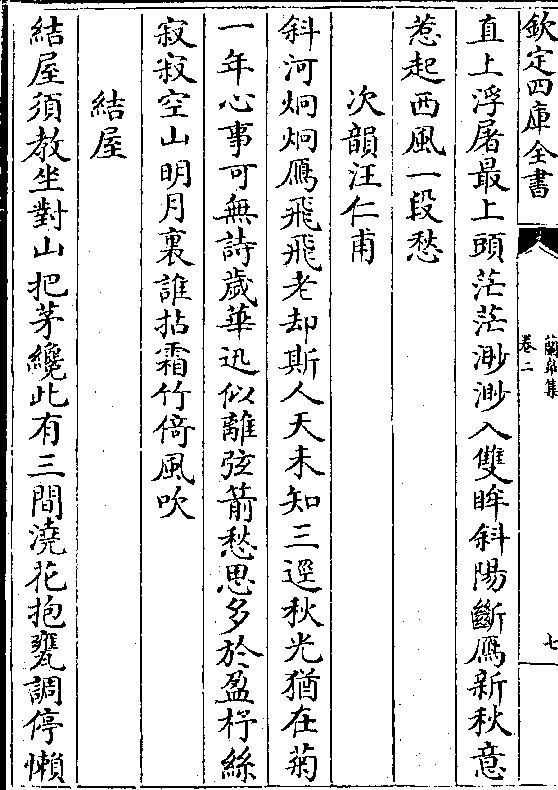 欽定四庫全書
蘭臯集
卷二
七
直上浮屠最上頭茫茫渺渺入雙眸斜陽斷鴈新秋意
惹起西風一段愁
次韻汪仁甫
斜河炯炯鴈飛飛老却斯人天未知三逕秋光猶在菊
一年心事可無詩歲華迅似離弦箭愁思多於盈杼絲
寂寂空山明月裏誰拈霜竹倚風吹
結屋
結屋須教坐對山把茅纔此有三間澆花抱甕調停懶